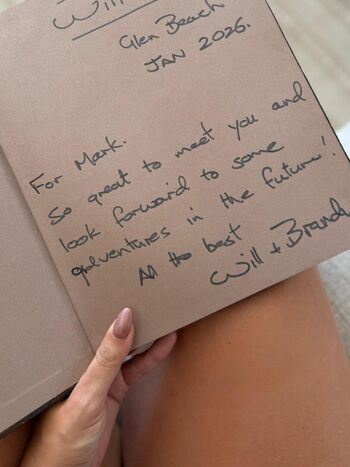 Will
Glen Beach
JAN 2026.
For Mark.
So great to meet you and
look forward to some
adventures in the future!
All the best
Will + Brand